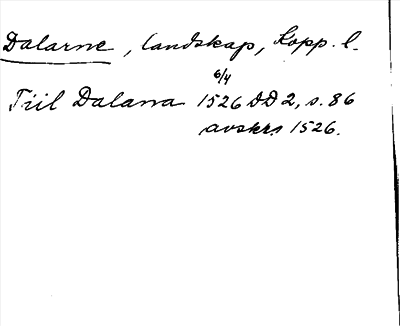 Dalarne, landskap, Kopp. l.
6/4
Tiil Dalarna 1526 DD 2, s. 86
avskr. 1526.